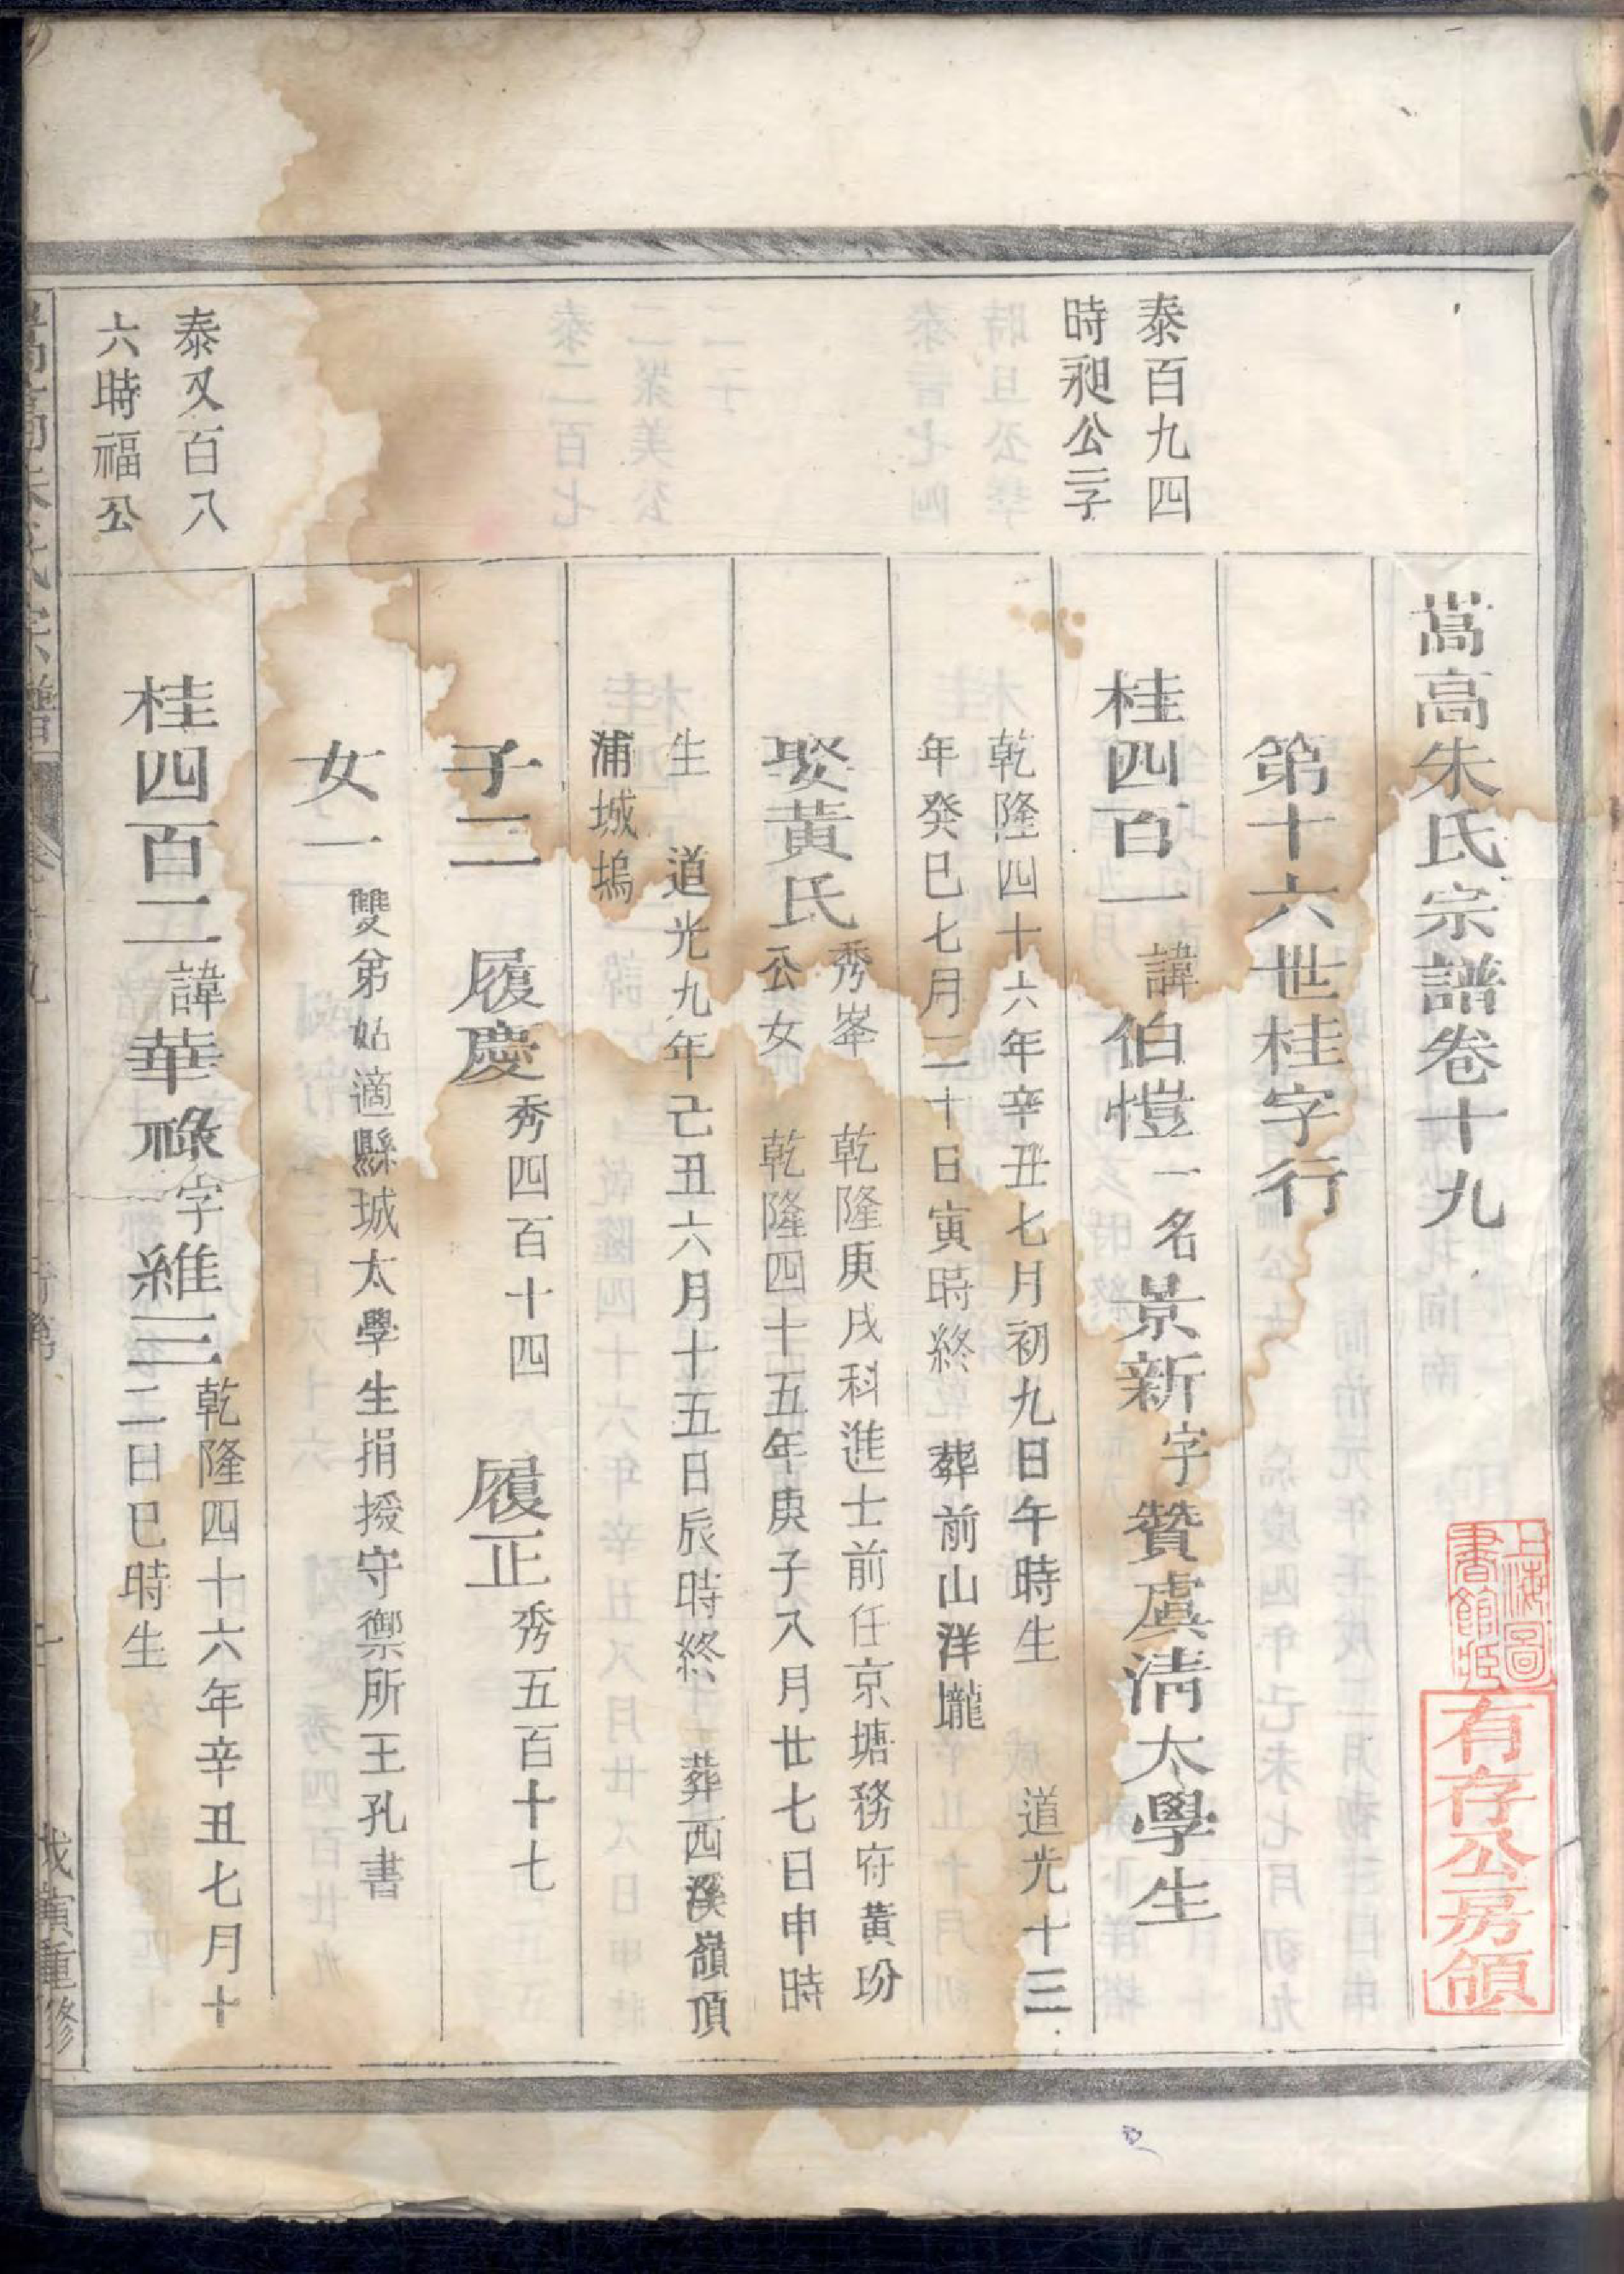 嵩高朱氏宗譜卷十九
上海圖書館藏
有存公房領
第十六世桂字行
泰百九四
時昶公三子
桂四百一諱伯愷一名景新字贊虞清太學生
乾隆四十六年辛丑七月初九日午時生 道光十三
年癸巳七月二十日寅時終 葬前山洋壠
娶黃氏
秀峯 乾隆庚戌科進士前任京塘務府黃玢
公女 乾隆四十五年庚子八月廿七日申時
生 道光九年己丑六月十五日辰時終 葬西溪嶺頂
浦城塢
子二 履慶秀四百十四 履正秀五百十七
女一 雙弟姑適縣城太學生捐授守禦所王孔書
泰又百八
六時福公
桂四百二諱華祿字維三
乾隆四十六年辛丑七月十
二日巳時生
嵩高朱氏宗譜
戊寅重修